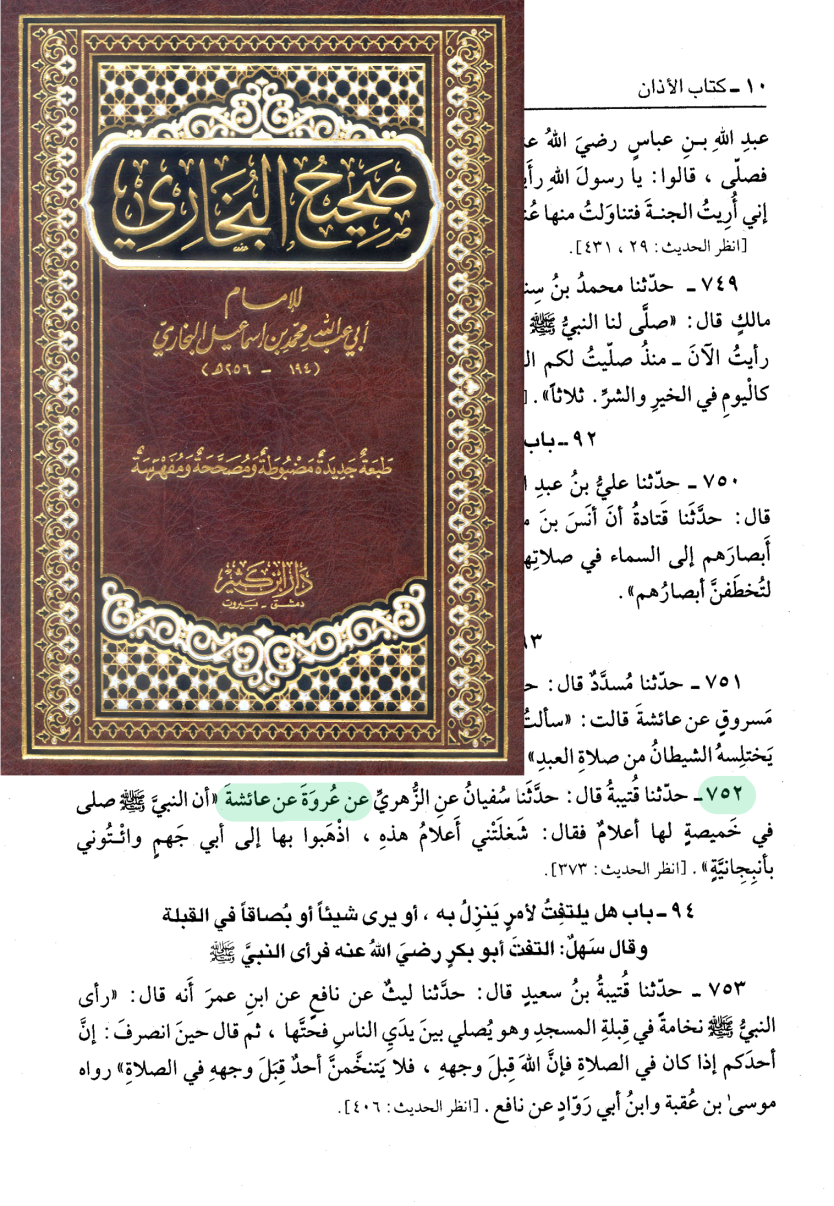 صَحِيحُ البُخَارِي
للإمام
أبي عبد الله محمد بن إسماعيل البخاريّ
(١٩٤ - ٢٥٦هـ)
طَبعَةٌ جَدِيدَةٌ مَضبُوطَةٌ وَمُصَحَّحَةٌ وَمُفَهْرَسَةٌ
دار ابن كثير
دمشق - بيروت
١٠ - كتاب الأذان
عبدِ اللهِ بـنِ عباسٍ رضيَ اللهُ
فصلّى ، قالوا: يا رسولَ اللهِ
إني أُرِيتُ الجنـةَ فتناوَلتُ منها
[انظر الحديث: ٢٩ ، ٤٣١].
٧٤٩ - حدّثنا محمدُ بنُ
مالكٍ قال: «صلَّى لنا النبيُّ ﷺ
رأيتُ الآنَ - منذُ صلّيتُ لكم
كالْيومِ في الخيرِ والشرِّ. ثلاثاً».
٩٢ - باب
٧٥٠ - حدّثنا عليُّ بنُ عبدِ
قال: حدَّثَنا قَتادةُ أنَ أنَسَ بنَ
أَبصارَهم إلى السماء في
لتُخطَفنَّ أبصارُهم».
٧٥١ - حدّثنا مُسدَّدٌ قال:
مَسروقٍ عن عائشةَ قالت: «سألتُ
يَختلِسهُ الشيطانُ من صلاةِ العبدِ»
٧٥٢ - حدّثنا قُتيبةُ قال: حدَّثَنا سُفيانُ عنِ الزُّهريِّ عن عُروَةَ عن عائشةَ «أن النبيَّ ﷺ صلى
في خَميصةٍ لها أعلامٌ فقال: شَغلَتْني أَعلامُ هذهِ ، اذْهَبوا بها إلى أبي جَهمٍ وائْـتُوني
بأنبِجانيَّةٍ». [انظر الحديث: ٣٧٣].
٩٤ - باب هل يلتفِتُ لأمرٍ يَنزِلُ به ، أو يرى شيئاً أو بُصاقاً في القبلة
وقال سَهلٌ: التفتَ أبو بكرٍ رضيَ اللهُ عنه فرأى النبيَّ ﷺ
٧٥٣ - حدّثنا قُتيبةُ بنُ سعيدٍ قال: حدَّثنا ليثٌ عن نافعٍ عن ابنِ عمرَ أَنه قال: «رأى
النبيُّ ﷺ نخامةً في قِبلةِ المسجدِ وهو يُصلي بينَ يدَيِ الناسِ فحتَّها ، ثم قال حينَ انصرفَ: إنَّ
أحدَكم إذا كان في الصلاةِ فإنَّ اللهَ قِبلَ وجههِ ، فلا يَتنخَّمنَّ أحدٌ قِبَلَ وجههِ في الصلاةِ» رواه
موسىٰ بن عُقبة وابنُ أبي رَوّادٍ عن نافع. [انظر الحديث: ٤٠٦].